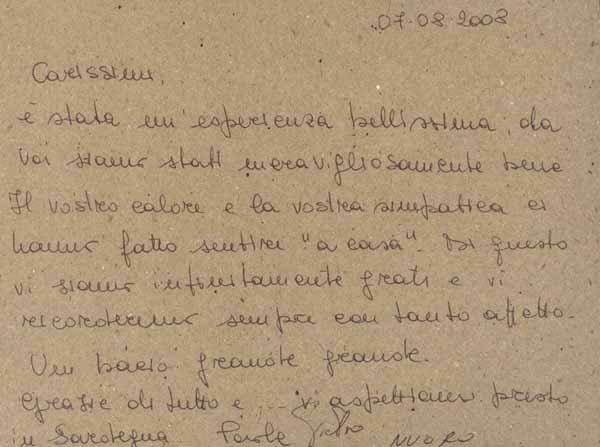 07-08-2008
Carissimi,
è stata un'esperienza bellissima, da
voi siamo stati meravigliosamente bene
Il vostro calore e la vostra simpatica ci
hanno fatto sentire "a casa". Di questo
vi siamo infinitamente grati e vi
ricorderemo sempre con tanto affetto.
Un bacio grande grande.
Grazie di tutto e ... vi aspettiamo presto
in Sardegna Paola Pietro NUORO